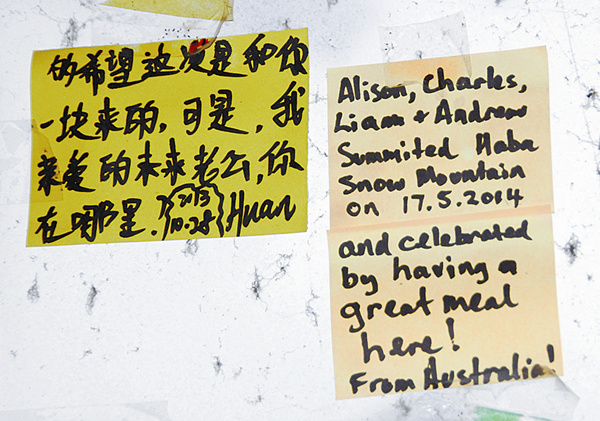 的希望这次是和你
一块来的，可是，我
亲爱的未来老公，你
在哪里.
2013
10.28
Huan
Alison, Charles,
Liam + Andrew
Summited Haba
Snow Mountain
on 17.5.2014
and celebrated
by having a
great meal
here!
From Australia!